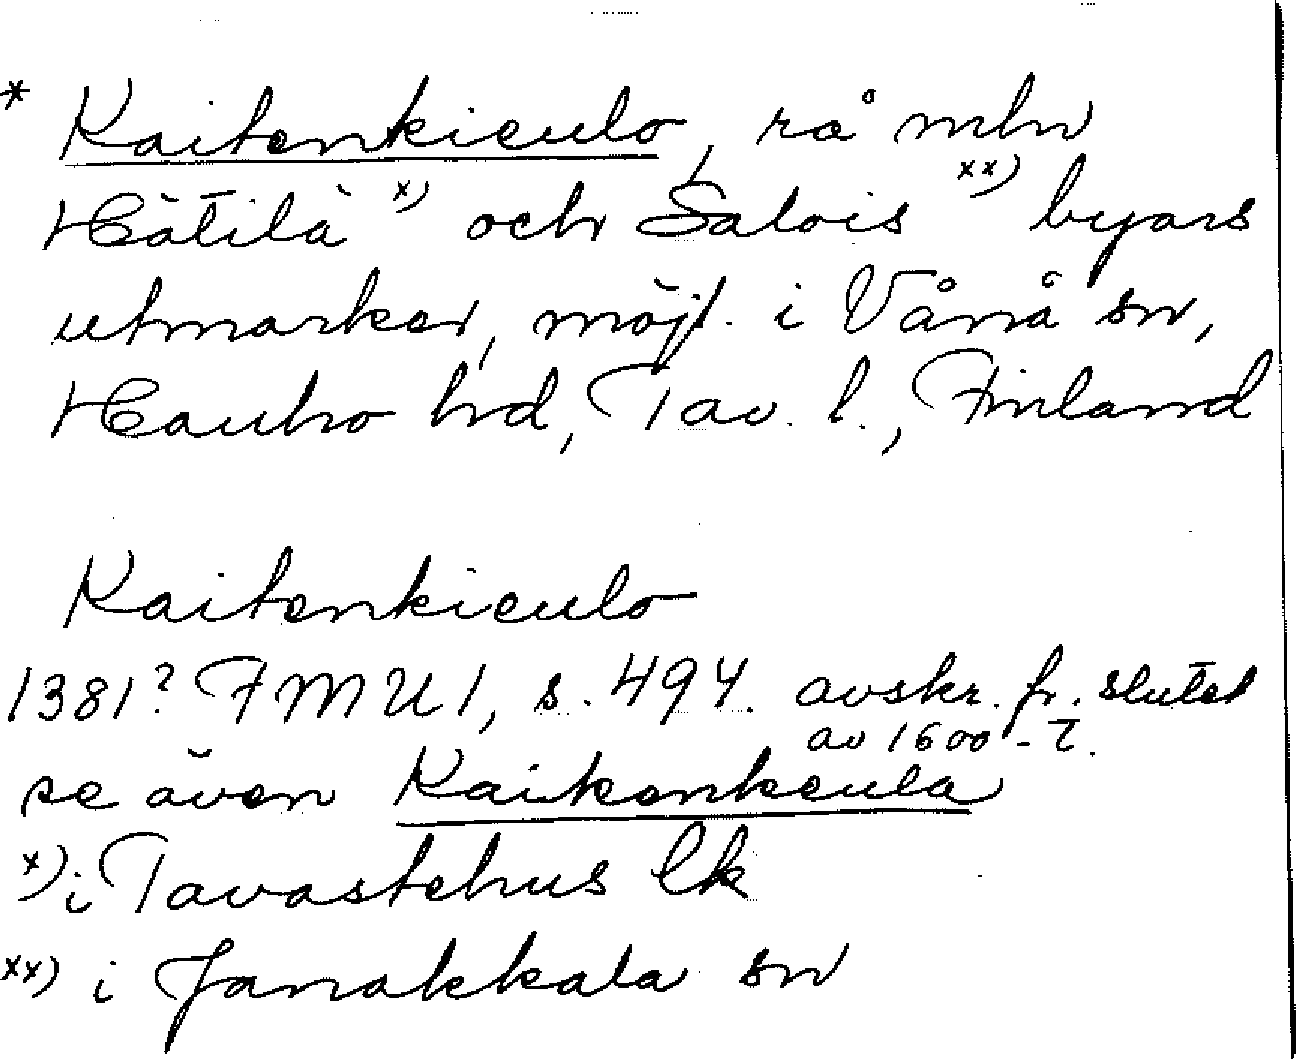 * Kaitenkieulo, rå mln
Hätilä x) och Salois xx) byars
utmarker, möjl. i Vånå sn,
Hauho hd, Tav. l., Finland
Kaitenkieulo
1381? FMU 1, s. 494. avskr. fr. slutet
av 1600-t.
se även Kaikenkeula
x) i Tavastehus lk
xx) i Janakkala sn